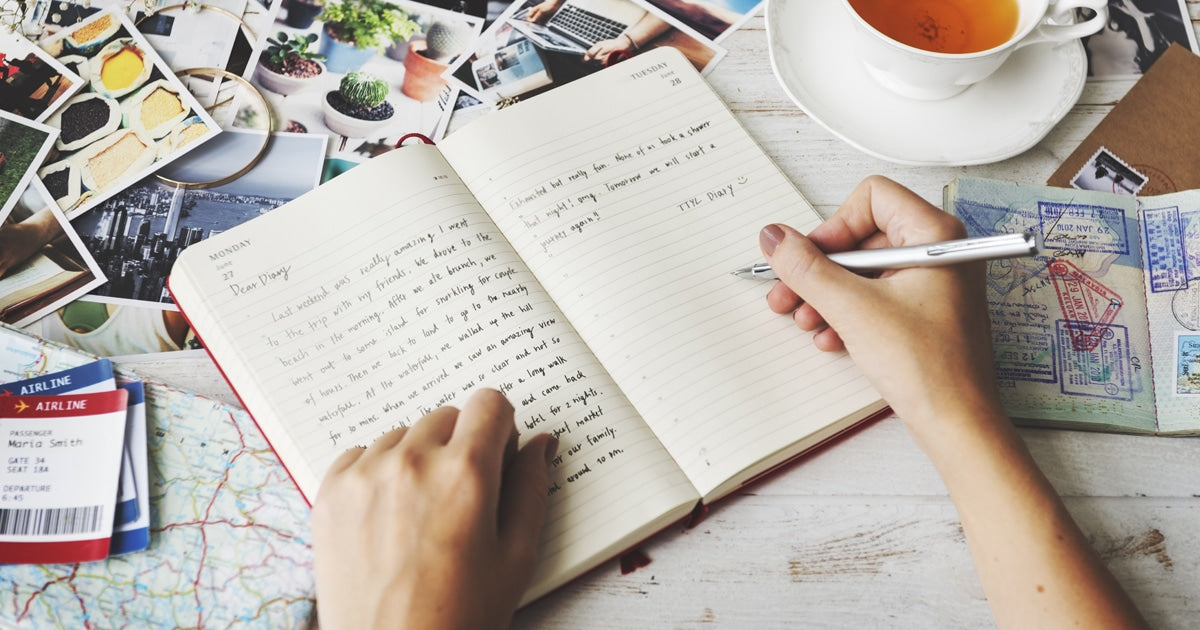 MONDAY
June
27
Dear Diary
Last weekend was really amazing I went
to the trip with my friends. We drove to the
beach in the morning. After we ate brunch, we
went out to some island for snorkling for couple
of hours. Then we back to land to go to the nearby
waterfall. At the waterfall, we walked up the hill
for 30 mins. When we arrived we saw an amazing view
The water was so clear and not so
After a long walk
and came back
hotel for 2 nights.
market
for our family.
around 10 PM.
TUESDAY
June
28
Exhausted but really fun. None of us took a shower
that night! omg. Tomorrow we will start a
journey again!!
TTYL Diary
AIRLINE
AIRLINE
PASSENGER
Maria Smith
GATE 34
SEAT 18A
DEPARTURE
6:45
29 JAN